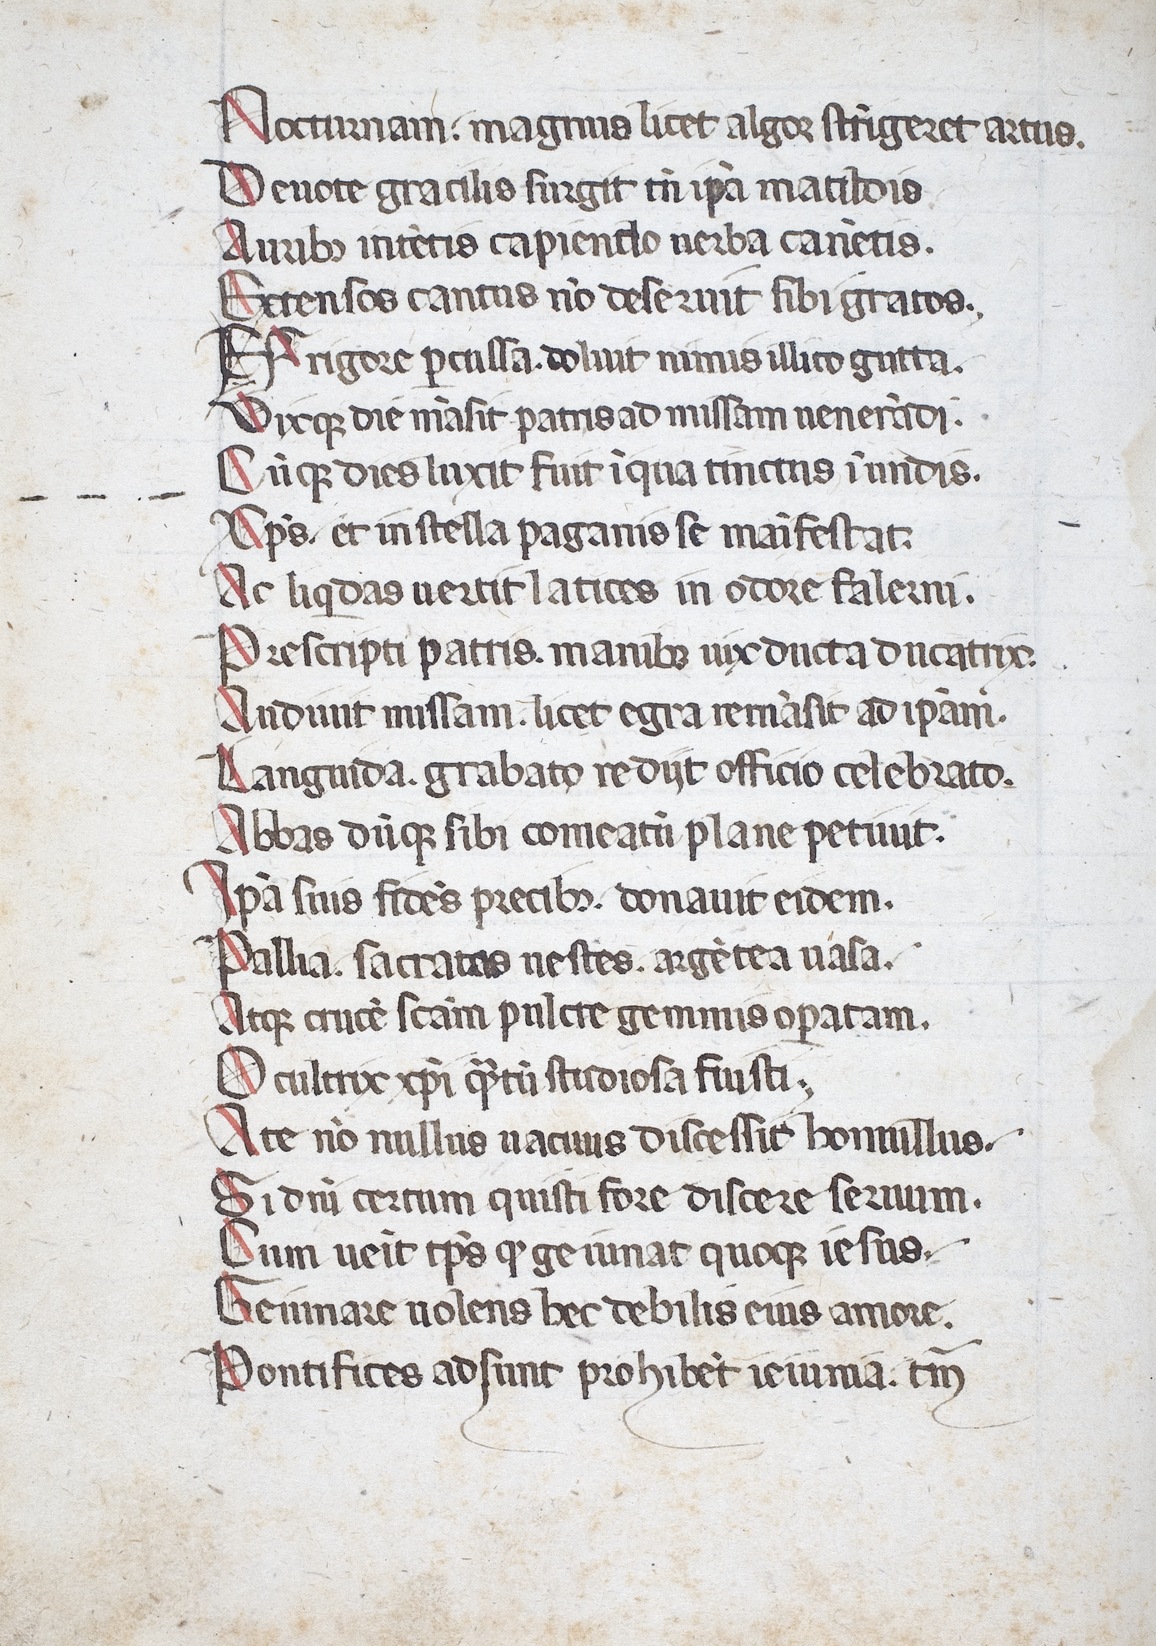 Nocturnam. magnus licet algor strĩgeret artus.
Deuote gracilis surgit tñ ip̃a matildis
Auribꝫ intẽtis capiendo uerba canẽtis.
Extensos cantus nõ deseruit sibi gratos.,
Et Frigore ꝑcussa. doluit nimis illico gutta.
Vixqꝫ die mãsit patris ad missam uenerãdi.
Cũqꝫ dies luxit fuit ĩ qua tinctus ĩ undis.
Xp̃s. et in stella paganis se maĩfestat.
Ac liqdas uertit latices in odore falerni.
Prescripti patris. manibꝫ uix ducta ducatrix.
Audiuit missam. licet egra remãsit ad ip̃am.
Languida. grabato redijt officio celebrato.
Abbas dũqꝫ sibi comeatũ plane petiuit.
Ip̃a suis fidẽs precibꝫ. donauit eidem.
Pallia. sacratas uestes. argẽtea uasa.
Atqꝫ crucẽ scãm pulcre gemmis oꝑatam.
O cultrix xp̃i q̃tũ studiosa fuisti.,
A te nõ nullus uacuus discessit homullus.
Si dñi certum quisti fore discere seruum.
Cum ueĩt tp̃s qͦ geiunat quoqꝫ iesus.
Geiunare uolens hec debilis eius amore.
Pontifices adsunt prohibẽt ieiunia. tm̃